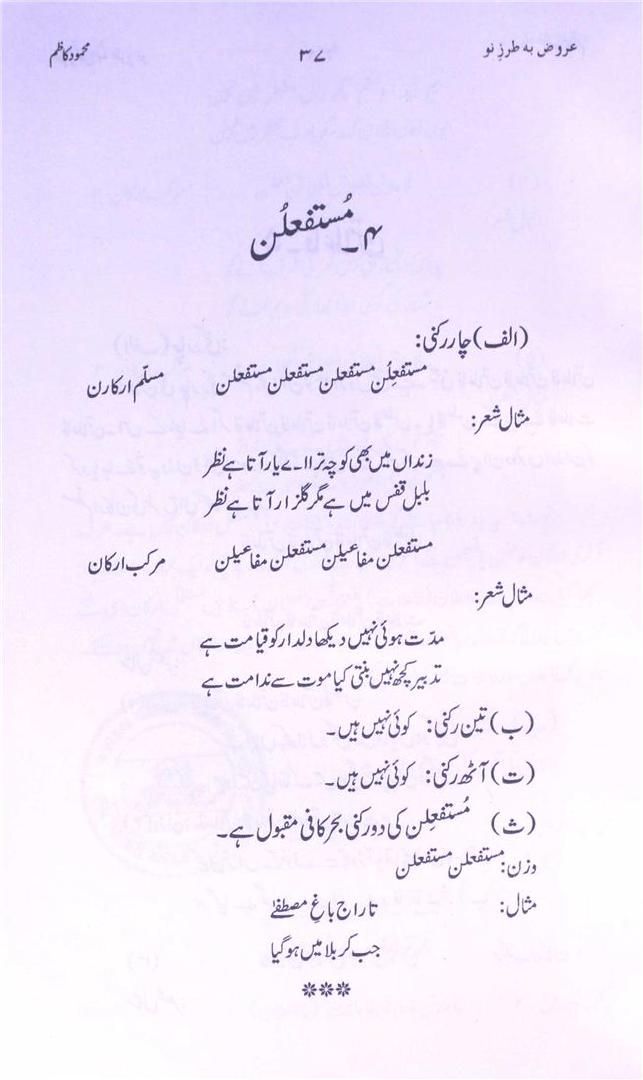 عروض بہ طرزِ نو ۳۷ محمود کاظم
۴۔ مُستفعلُن
(الف) چار رکنی:
مستفعلُن مستفعلن مستفعلن مستفعلن مسلّم ارکارن
مثال شعر:
زنداں میں بھی کوچہ ترا اے یار آتا ہے نظر
بلبل قفس میں ہے مگر گلزار آتا ہے نظر
مستفعلن مفاعیلن مستفعلن مفاعیلن مرکب ارکان
مثال شعر:
مدّت ہوئی نہیں دیکھا دلدار کو قیامت ہے
تدبیر کچھ نہیں بنتی کیا موت سے ندامت ہے
(ب) تین رکنی: کوئی نہیں ہیں۔
(ت) آٹھ رکنی: کوئی نہیں ہیں۔
(ث) مُستفعلِن کی دو رکنی بحر کافی مقبول ہے۔
وزن: مستفعلن مستفعلن
مثال: تاراج باغِ مصطفےٰ
جب کربلا میں ہو گیا
***